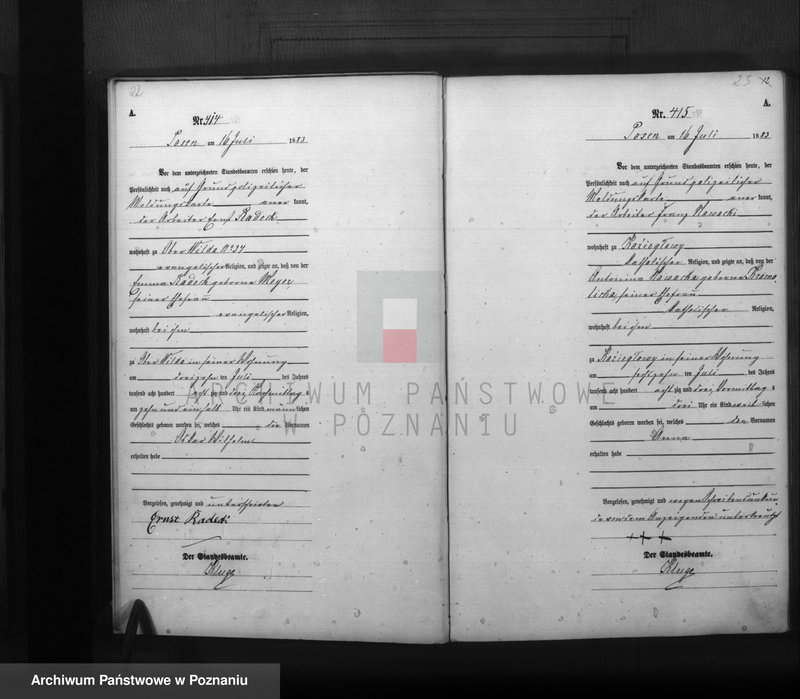 22
A.
Nr. 414
Posen am 16 Juli 1883
Vor dem unterzeichneten Standesbeamten erschien heute, der
Persönlichkeit nach auf Grund polizeilicher
Meldungskarte anerkannt,
der Arbeiter Ernst Kadeck
wohnhaft zu Ober Wilda No 34
evangelischer Religion, und zeigte an, daß von der
Emma Kadeck geborne Meyer,
seiner Ehefrau
evangelischer Religion,
wohnhaft bei ihm
zu Ober Wilda in seiner Wohnung
am dreizehnten Juli des Jahres
tausend acht hundert achtzig und drei Nachmittag
um zehn und einhalb Uhr ein Kind männlichen
Geschlechts geboren worden sei, welches die Vornamen
Oskar Wilhelm
erhalten habe
Vorgelesen, genehmigt und unterschrieben
Ernst Kadeck
Der Standesbeamte.
Kluge
23 12
A.
Nr. 415
Posen am 16 Juli 1883
Vor dem unterzeichneten Standesbeamten erschien heute, der
Persönlichkeit nach auf Grund polizeilicher
Meldungskarte anerkannt,
der Arbeiter Franz Nowacki
wohnhaft zu Koziegłowy
katholischer Religion, und zeigte an, daß von der
Antonina Nowacka geborne
seiner Ehefrau
katholischer Religion,
wohnhaft bei ihm
zu Koziegłowy in seiner Wohnung
am ten Juli des Jahres
tausend acht hundert achtzig und drei Vormittag
um drei Uhr ein Kind weiblichen
Geschlechts geboren worden sei, welches den Vornamen
Anna
erhalten habe
Vorgelesen, genehmigt und wegen Schreibensunkun-
de von dem Anzeigenden unterkreuzt
+++
Der Standesbeamte.
Kluge
ARCHIWUM PAŃSTWOWE
W POZNANIU
Archiwum Państwowe w Poznaniu